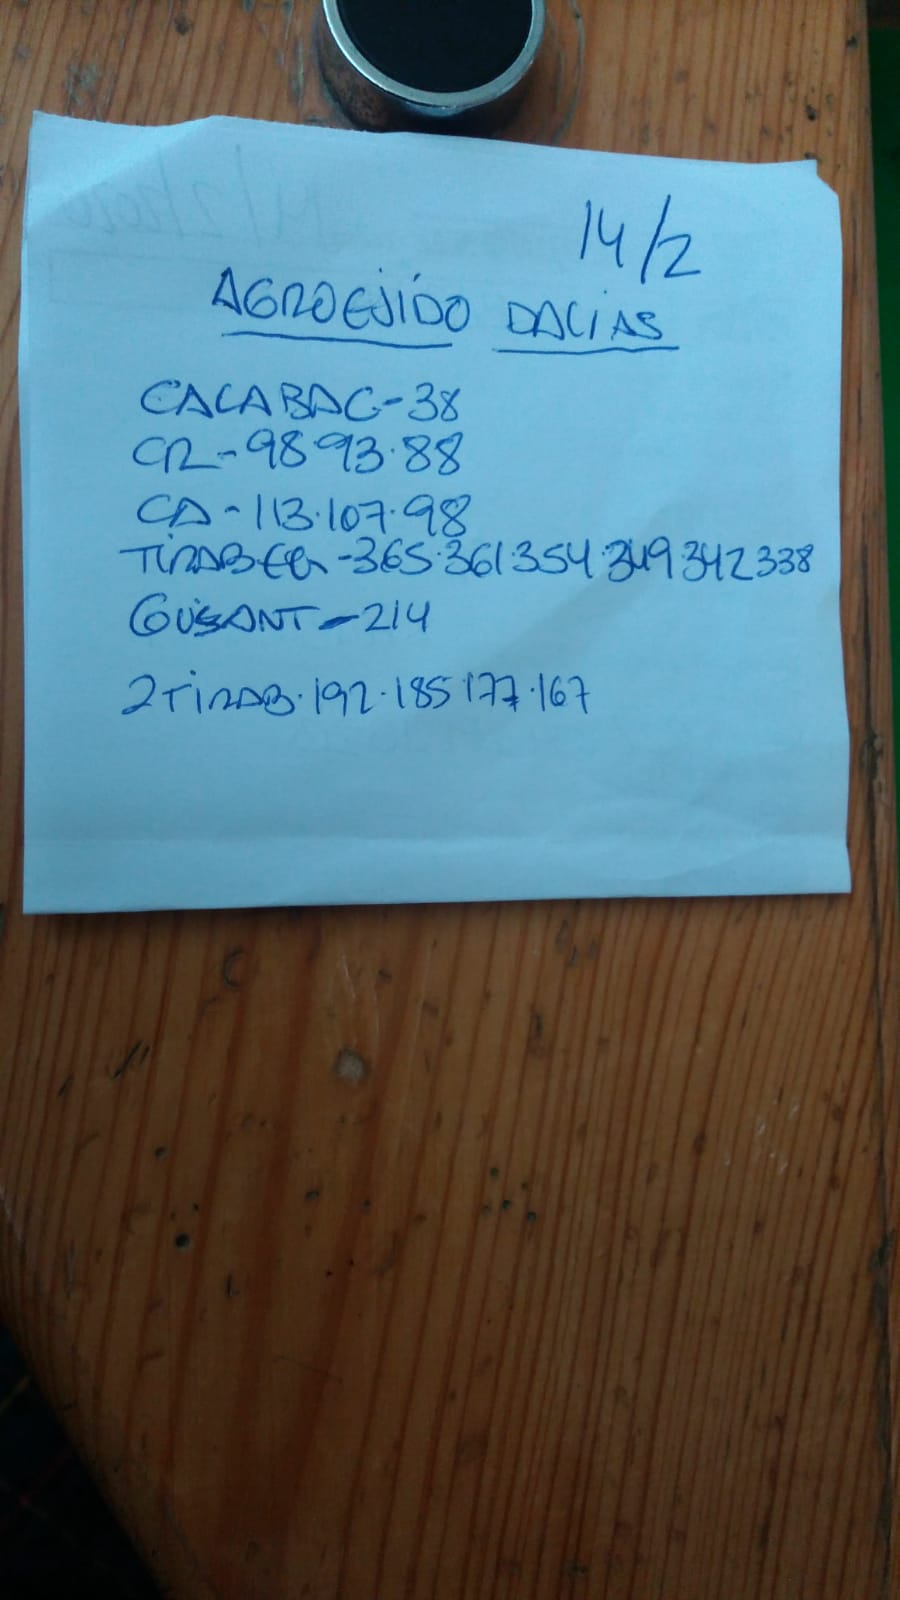 14/2
AGROEJIDO DALIAS
CALABAC-38
CR-98.93.88
CA-113.107.98
TIRABEQ-365.361.354.349.342.338
GUISANT-214
2TIRAB.192.185.177.167